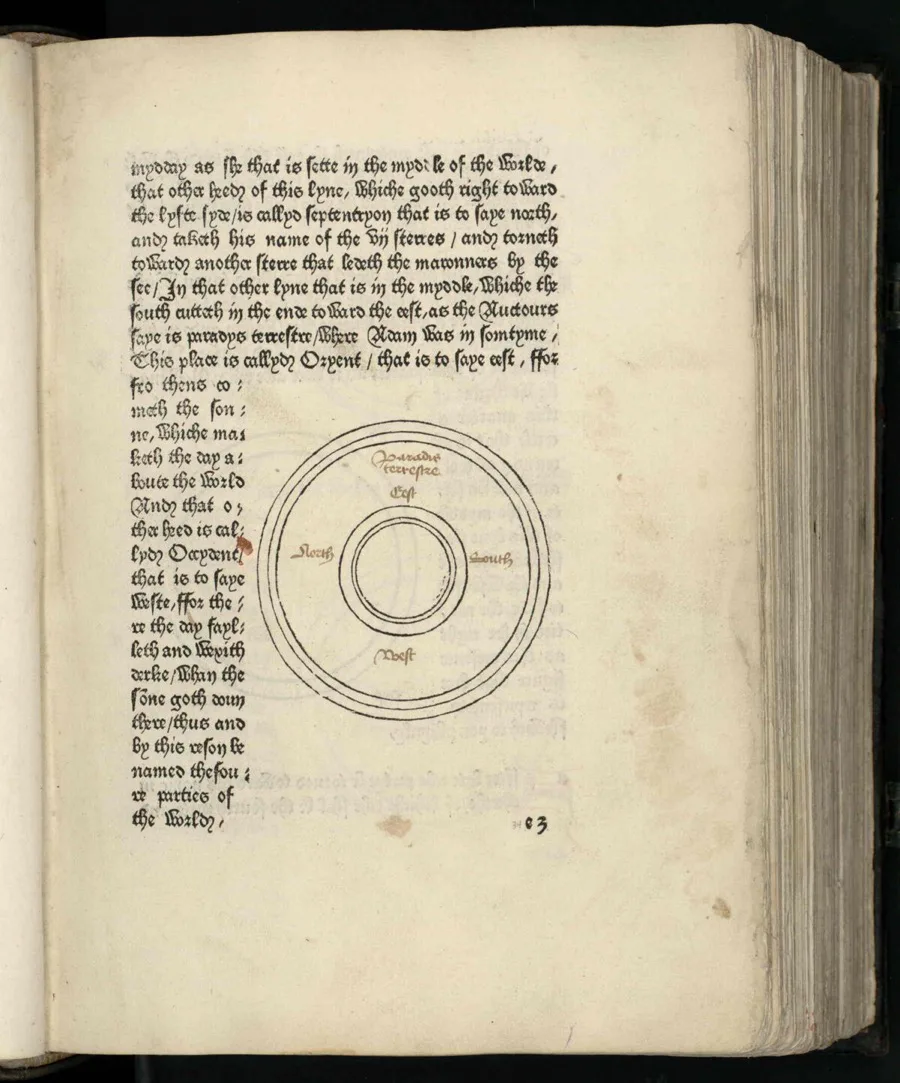 mydday as she that is sette in the myddle of the worlde,
that other heed of this lyne, whiche gooth right toward
the lyfte syde/is callyd septentryon that is to saye north,
and taketh his name of the vij sterres / and torneth
toward another sterre that ledeth the maronners by the
see/In that other lyne that is in the myddle, whiche the
south cutteth in the ende toward the eest, as the Auctours
saye is paradys terrestre/where Adam was in somtyme,
This place is callyd Oryent / that is to saye eest, ffor
fro thens co:
meth the son:
ne, whiche ma:
keth the day a:
boute the world
And that o,
ther heed is cal:
lyd Occydent/
that is to saye
weste, ffor the:
re the day fayl:
leth and wexith
derke/whan the
sōne goth doun
there/thus and
by this reson be
named the fou:
re parties of
the world,
Paradis
terrestre
Eest
North
South
West
e3